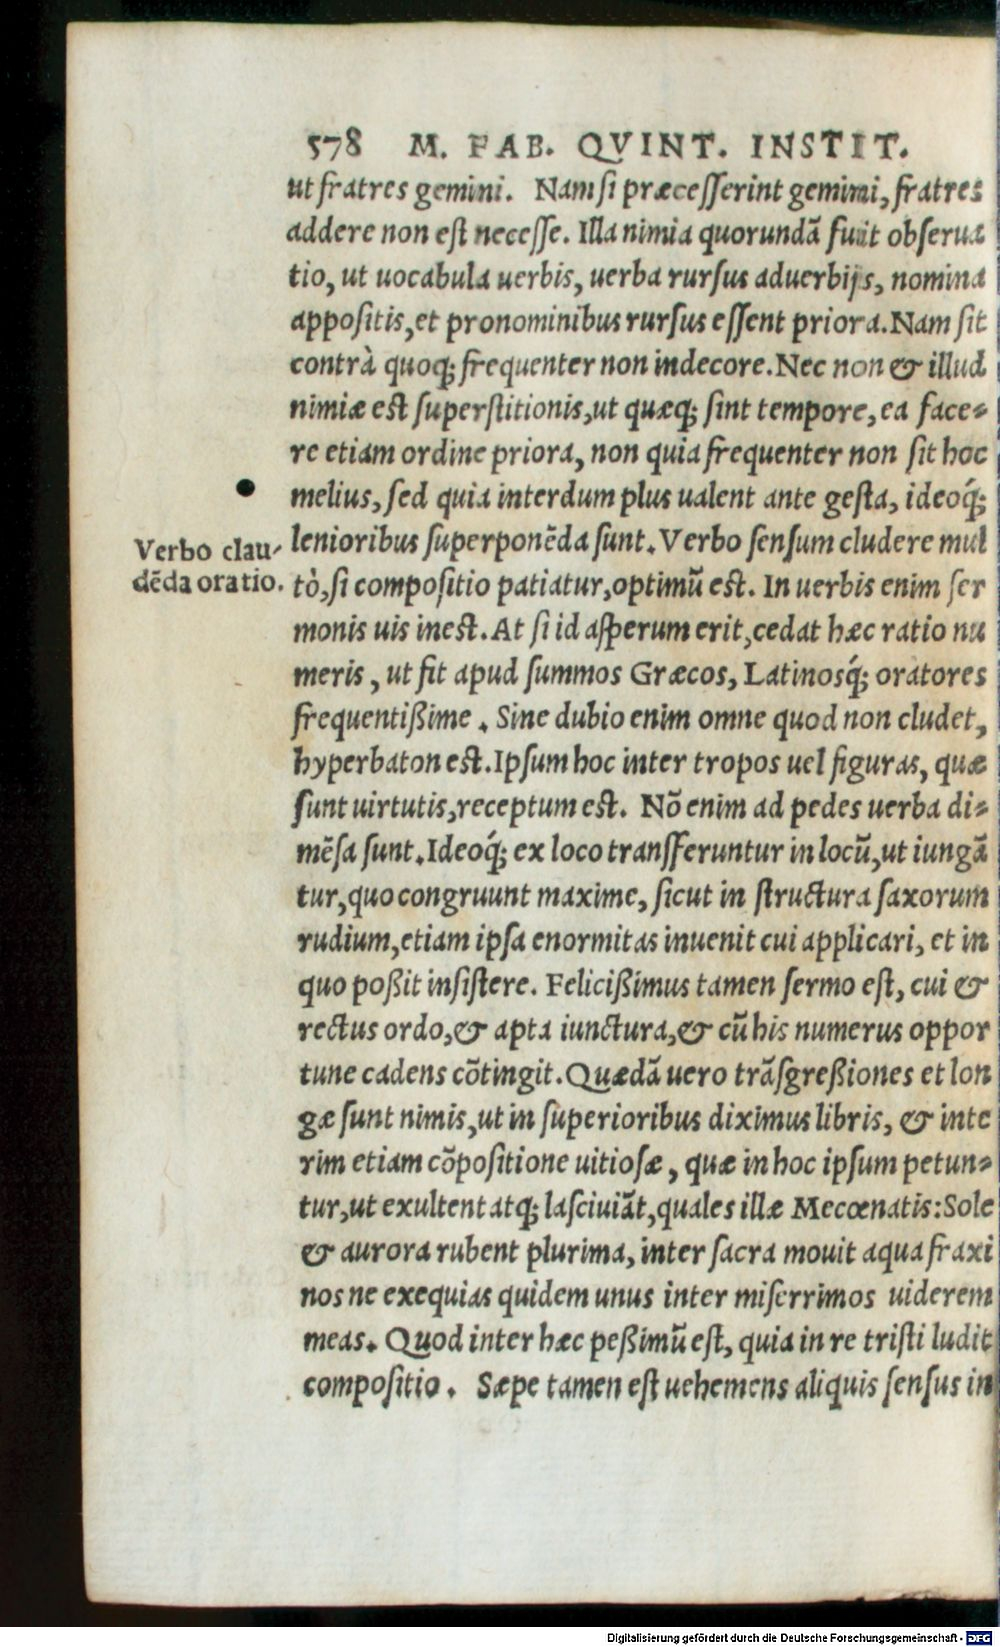 578 M. FAB. QVINT. INSTIT.
ut fratres gemini. Nam si præcesserint gemini, fratres
addere non est necesse. Illa nimia quorundā fuit obserua
tio, ut uocabula uerbis, uerba rursus aduerbijs, nomina
appositis, et pronominibus rursus essent priora. Nam sit
contrà quoq; frequenter non indecore. Nec non & illud
nimiæ est superstitionis, ut quæq; sint tempore, ea face-
re etiam ordine priora, non quia frequenter non sit hoc
melius, sed quia interdum plus ualent ante gesta, ideoq́;
Verbo clau-
dēda oratio.
lenioribus superponēda sunt. Verbo sensum cludere mul
tò, si compositio patiatur, optimū est. In uerbis enim ser
monis uis inest. At si id asperum erit, cedat hæc ratio nu
meris, ut fit apud summos Græcos, Latinosq́; oratores
frequentißime. Sine dubio enim omne quod non cludet,
hyperbaton est. Ipsum hoc inter tropos uel figuras, quæ
sunt uirtutis, receptum est. Nō enim ad pedes uerba di-
mēsa sunt. Ideoq́; ex loco transferuntur in locū, ut iungā
tur, quo congruunt maxime, sicut in structura saxorum
rudium, etiam ipsa enormitas inuenit cui applicari, et in
quo poßit insistere. Felicißimus tamen sermo est, cui &
rectus ordo, & apta iunctura, & cū his numerus oppor
tune cadens cōtingit. Quædā uero trāsgreßiones et lon
gæ sunt nimis, ut in superioribus diximus libris, & inte
rim etiam cōpositione uitiosæ, quæ in hoc ipsum petun-
tur, ut exultent atq; lasciuiāt, quales illæ Mecœnatis: Sole
& aurora rubent plurima, inter sacra mouit aqua fraxi
nos ne exequias quidem unus inter miserrimos uiderem
meas. Quod inter hæc peßimū est, quia in re tristi ludit
compositio. Sæpe tamen est uehemens aliquis sensus in
Digitalisierung gefördert durch die Deutsche Forschungsgemeinschaft - DFG